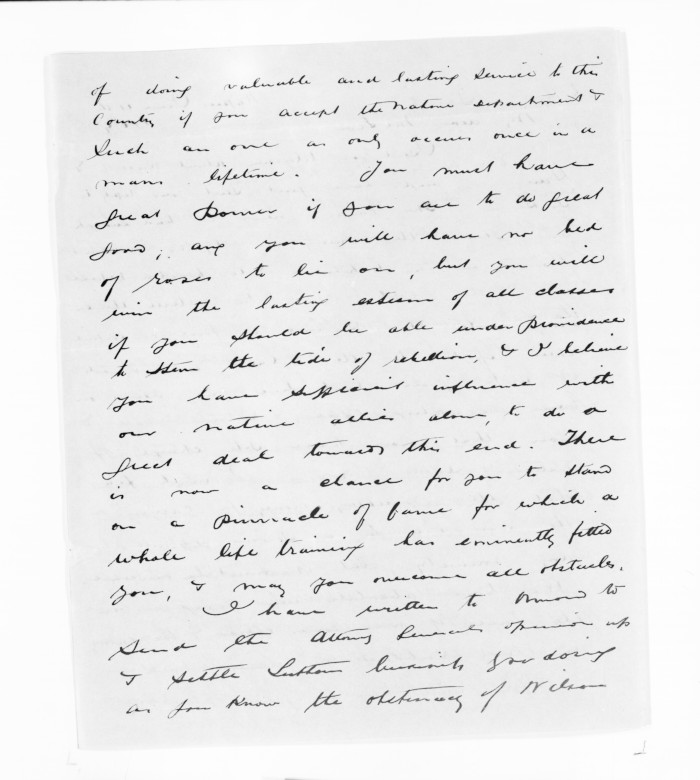 of doing valuable and lasting service to this
Country if you accept the Native department &
Such an one as only occurs once in a
mans lifetime. You must have
great Power if you are to do great
Good; any you will have no bed
of roses to lie on, but you will
win the lasting esteem of all classes
if you should be able under providence
to stem the tide of rebellion, & I believe
you have sufficient influence with
our native allies alone, to do a
great deal towards this end. There
is now a chance for you to stand
on a pinnacle of fame for which a
whole life training has eminently fitted
you, & may you overcome all obstacles.
I have written to Ormond to
Send the Attorny Generals opinion up
& settle doing
as you know the obstinacy of Wilson